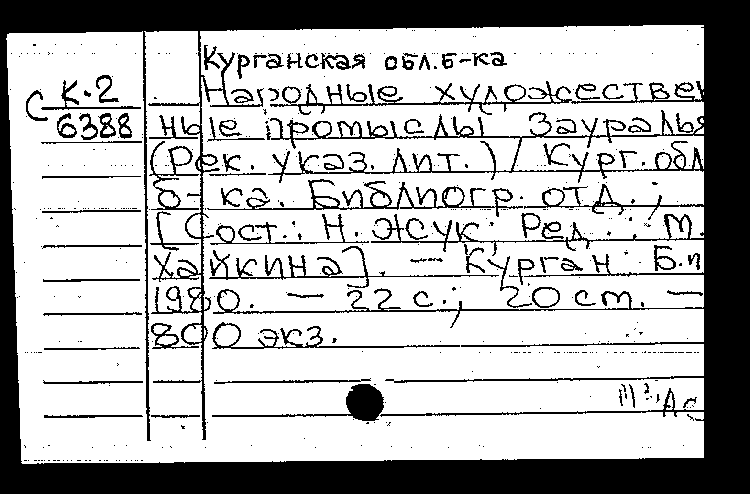 Курганская обл.б-ка
С К-2
6388
Народные художествен
ные промыслы Зауралья
(Рек. указ. лит.) / Кург. обл
б-ка. Библиогр. отд.;
[Сост.: Н. Жук; Ред.: М.
Хайкина]. — Курган: Б.и
1980. — 22 с.; 20 см. —
800 экз.